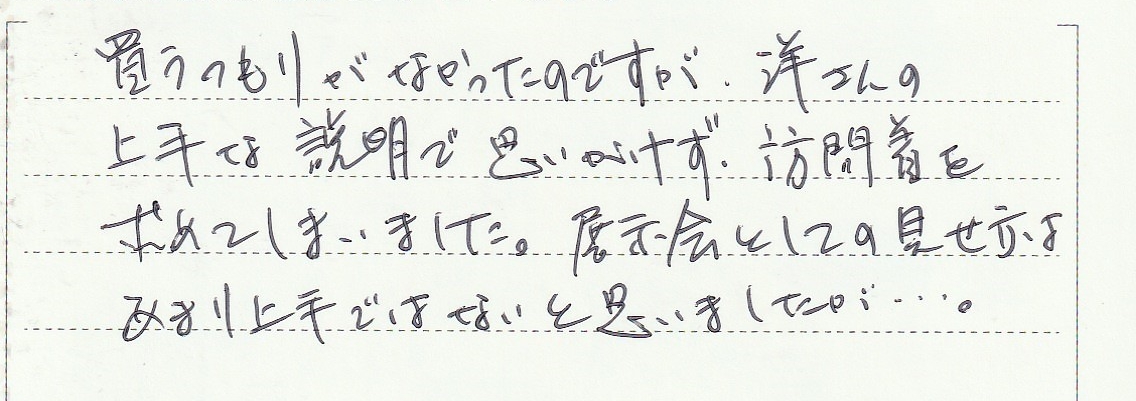 買うつもりがなかったのですが、洋さんの
上手な説明で思いがけず、訪問着を
求めてしまいました。展示会としての見せ方は
あまり上手ではないと思いましたが…。